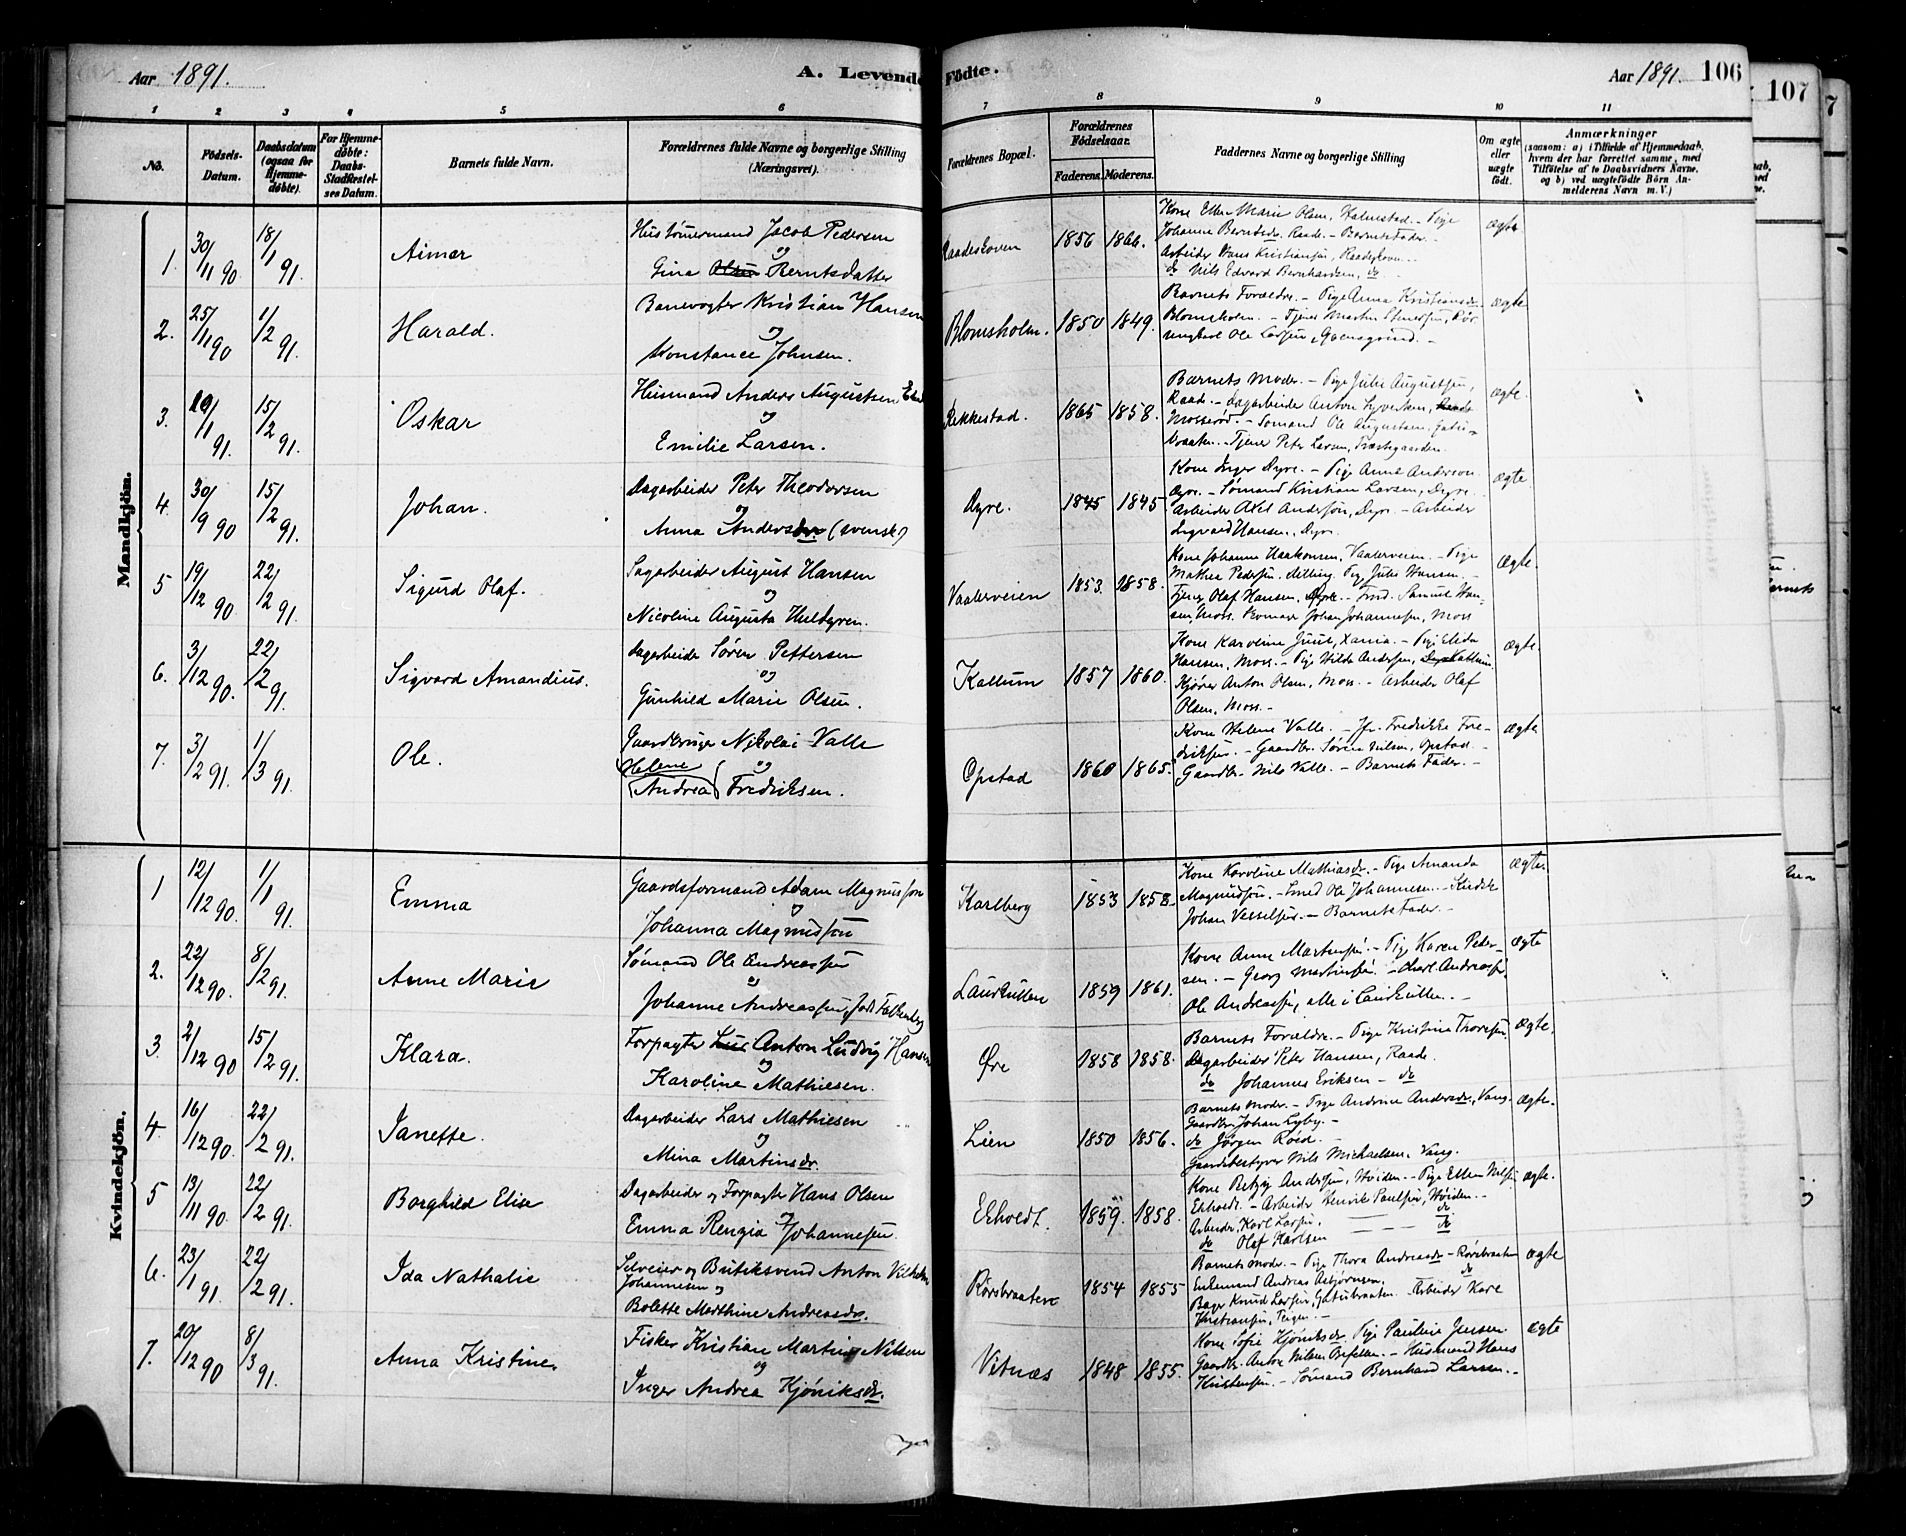 Aar 1891. A. Levende Fødte. Aar 1891. 106
107
1 2 3 4 5 6 7 8 9 10 11
No. Fødsels-Datum. Daabsdatum (ogsaa for Hjemmedøbte). For Hjemmedøbte: Daabs-Stadfæstelses Datum. Barnets fulde Navn. Forældrenes fulde Navne og borgerlige Stilling (Næringsvei). Forældrenes Bopæl. Forældrenes Fødselsaar. Faderens. Moderens. Faddernes Navne og borgerlige Stilling Om ægte eller uægte født. Anmærkninger (saasom: a) i Tilfælde af Hjemmedaab, hvem der har forrettet samme, med Tilføielse af to Daabsvidners Navne, og b) ved uægtefødte Børn Anmelderens Navn m. V.)
Mandkjøn.
1. 30/11 90 18/1 91. Aimar Hustømermand Jacob Pedersen og Gina Berntsdatter Raadeskoven 1856 1866. ægte
Kone Ellen Marie Olsen, Halmstad. - Pige
Johanne Berntsdr. Raade. - Barnets Fader. -
Arbeider Hans Kristiansen, Raadeskoven. -
do Nils Edvard Bernhardsen, do
2. 25/11 90 1/2 91. Harald. Banevogter Kristian Hansen og Konstance Johnsen. Blomsholm. 1850 1849. ægte
Barnets Forældre. - Pige Anna Kristiansdr.
Blomsholm. - Tjener Martin
Ole Larsen,
3. 10/1 91. 15/2 91. Oskar Husmand Anders Augustsen og Emilie Larsen. Rekkestad. 1865 1858. ægte.
Barnets Moder. - Pige Julie Augustsen,
Raade. - Dagarbeider Anton Syversen,
Mosserød. - Sømand Ole Augustsen,
Tjener Peter Larsen, Præstegaarden.
4. 30/9 90 15/2 91. Johan. Dagarbeider Peter Theodorsen og Anna Andersdr. (svensk) Dyre. 1845 1845. ægte
Kone Inger Dyre. - Pige Anne Anderson
Dyre. - Sømand Kristian Larsen, Dyre.
Arbeider Axel Anderson, Dyre. - Arbeider
Ingvard Hansen, Dyre.
5 19/12 90 22/2 91. Sigurd Olaf. Sagarbeider August Hansen og Nicoline Augusta Huldgren. Vaalerveien 1853. 1858. ægte.
Kone Johanne Haakonsen, Vaalerveien. - Pige
Mathea Pedersen. Pige Julie Hansen. -
Tjener Olaf Hansen, Dyre. - Samuel Han-
sen, Moss. Johan Johannesen, Moss
6. 3/12 90. 22/2 91. Sigvard Amandius. Dagarbeider Søren Pettersen og Gunhild Marie Olsen. Kallum 1857 1860. ægte.
Kone Karoline Juul, Xania. - Pige Elida
Hansen, Moss. - Pige Hilda Andersen,
Kjører Anton Olsen, Moss. - Arbeider Olaf
Olsen, Moss. -
7. 3/2 91. 1/3 91. Ole. Gaardbruger Nikolai Valle og (Helene Andrea) Fredriksen. Opstad 1860 1865. ægte
Kone Helene Valle. - Jfr. Fredrikke Fre-
driksen. - Gaardbr. Søren Nilsen, Opstad. -
Gaardbr. Nils Valle. - Barnets Fader. -
Kvindekjøn.
1 12/12 90. 1/1 91. Emma Gaardsformand Adam Magnusson og Johanna Magnusson Karlberg 1853 1858. ægte.
Kone Karoline Mathiasdr. - Pige Amanda
Magnusson. - Smed Ole Johannesen. -
Johan Vesselsen. - Barnets Fader. -
2. 22/12 90. 8/2 91. Anne Marie Sømand Ole Andreassen og Johanne Andreassen, født Falkenberg Laurkullen 1859 1861. ægte
Kone Anne Martinsen. - Pige Karen Peder-
sen. - Georg Martinsen. - Karl Andreassen
Ole Andreassen, alle i Laurkullen. -
3. 2/12 90 15/2 91. Klara. Forpagter Anton Ludvig Hansen og Karoline Mathiesen. Øre 1858 1858. ægte.
Barnets Forældre. - Pige Kristine Thoresen.
Dagarbeider Peter Hansen, Raade.
do Johannes Eriksen - do
4. 16/12 90. 22/2 91. Janette. Dagarbeider Lars Mathiesen og Mina Martinsdr. Lien 1850 1856. ægte.
Barnets Moder. - Pige Andrine Andersdr., Vang.
Gaardbr. Johan Lyby. -
do Jørgen Røed. -
Gaardbestyrer Nils Michaelsen, Vang.
5 13/11 90. 22/2 91. Borghild Elise Dagarbeider og Forpagter Hans Olsen og Emma Rengia Johannesen. Ekholdt. 1859. 1858. ægte.
Kone Andersen, Høiden. - Pige Ellen Nilsen
Ekholdt. - Arbeider Henrik Paulsen, Høiden. -
Arbeider Karl Larsen, do
do Olaf Karlsen do
6. 23/1 91. 22/2 91. Ida Nathalie Selveier og Butiksvend Anton Vilhelm Johannesen og Bolette Marthine Andreasdr. Rørsbraaten 1854 1855 ægte
Barnets Moder. - Pige Thora Andreasdr. - Rørsbraaten
Enkemand Andreas Asbjørnsen, do
Bager Knud Larsen, Gatubraaten. - Arbeider Karl
Kristiansen, Teigen. -
7. 20/12 90 8/3 91. Anna Kristine. Fisker Kristian Martin Nilsen og Inger Andrea Kjøniksdr. Vetnæs 1848 1855. ægte
Kone Sofie Kjøniksdr. Pige Pauline Jensen
Gaardbr. Anton Nilsen - Husmand Hans
Kristensen. - Sømand Bernhard Larsen. -